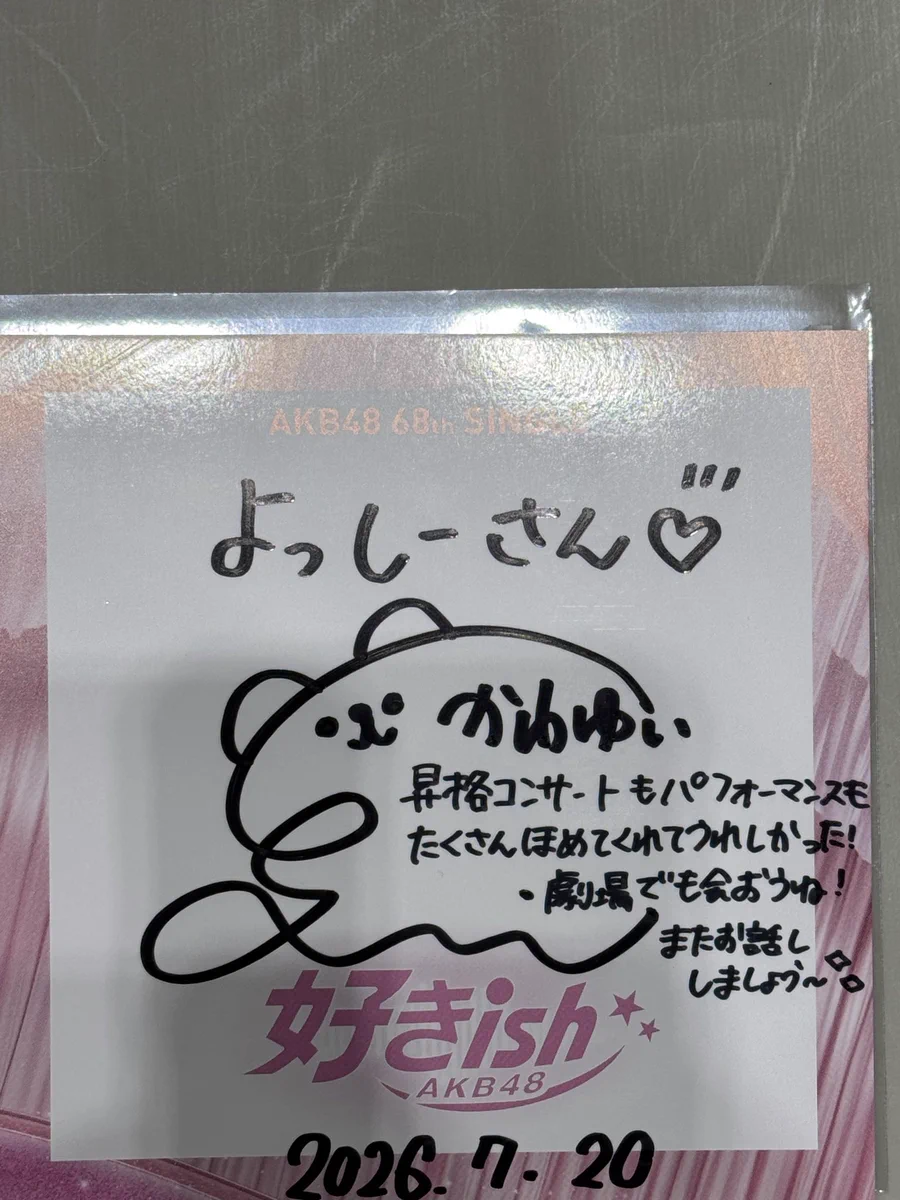 AKB48 68th SINGLE
よっしーさん♡
かわゆい
昇格コンサートもパフォーマンスも
たくさんほめてくれてうれしかった!
・劇場でも会おうね!
またお話し
しましょう〜
好きish
AKB48
2026.7.20